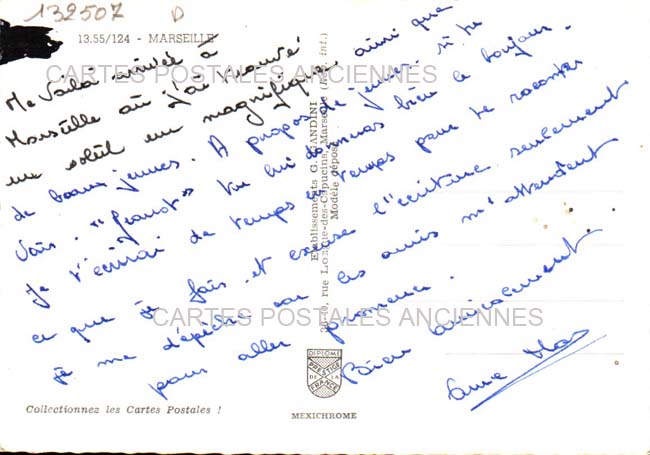 132507 D
13.55/124 - MARSEILLE
CARTES POSTALES ANCIENNES
Me voilà arrivée à
Marseille où j'ai trouvé
un soleil magnifique ainsi que
de beaux jeunes. A propos de jeunes si tu
vois "Jeanot" tu lui donneras bien le bonjour.
Je t'écrirai de temps en temps pour te raconter
ce que je fais et excuse l'écriture seulement
je me dépêche car les amis m'attendent
pour aller promener.
Bien amicalement.
Anne
Etablissements G. GANDINI
38-40, rue Longue-des-Capucins, Marseille
Modèle déposé
CARTES POSTALES ANCIENNES
DIPLOME
PRESTIGE
DE LA
FRANCE
Collectionnez les Cartes Postales !
MEXICHROME